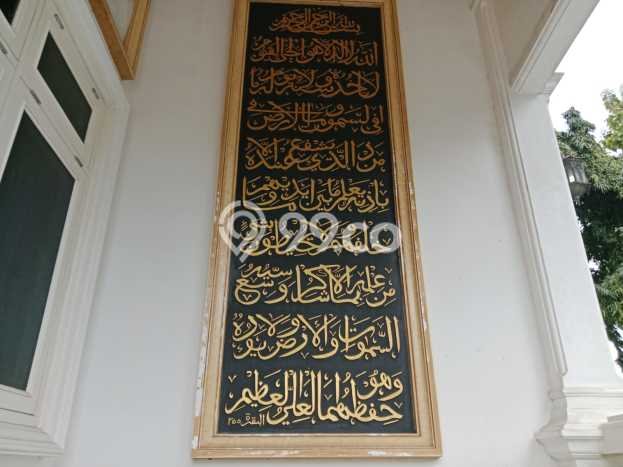 بسم الله الرحمن الرحيم
الله لا اله الا هو الحي القيوم
لا تأخذه سنة ولا نوم له ما
في السموات وما في الارض
من ذا الذي يشفع عنده الا
باذنه يعلم ما بين ايديهم وما
خلفهم ولا يحيطون بشئ
من علمه الا بما شاء وسع كرسيه
السموات والارض ولا يؤده
حفظهما وهو العلي العظيم
البقرة ٢٥٥
99.co